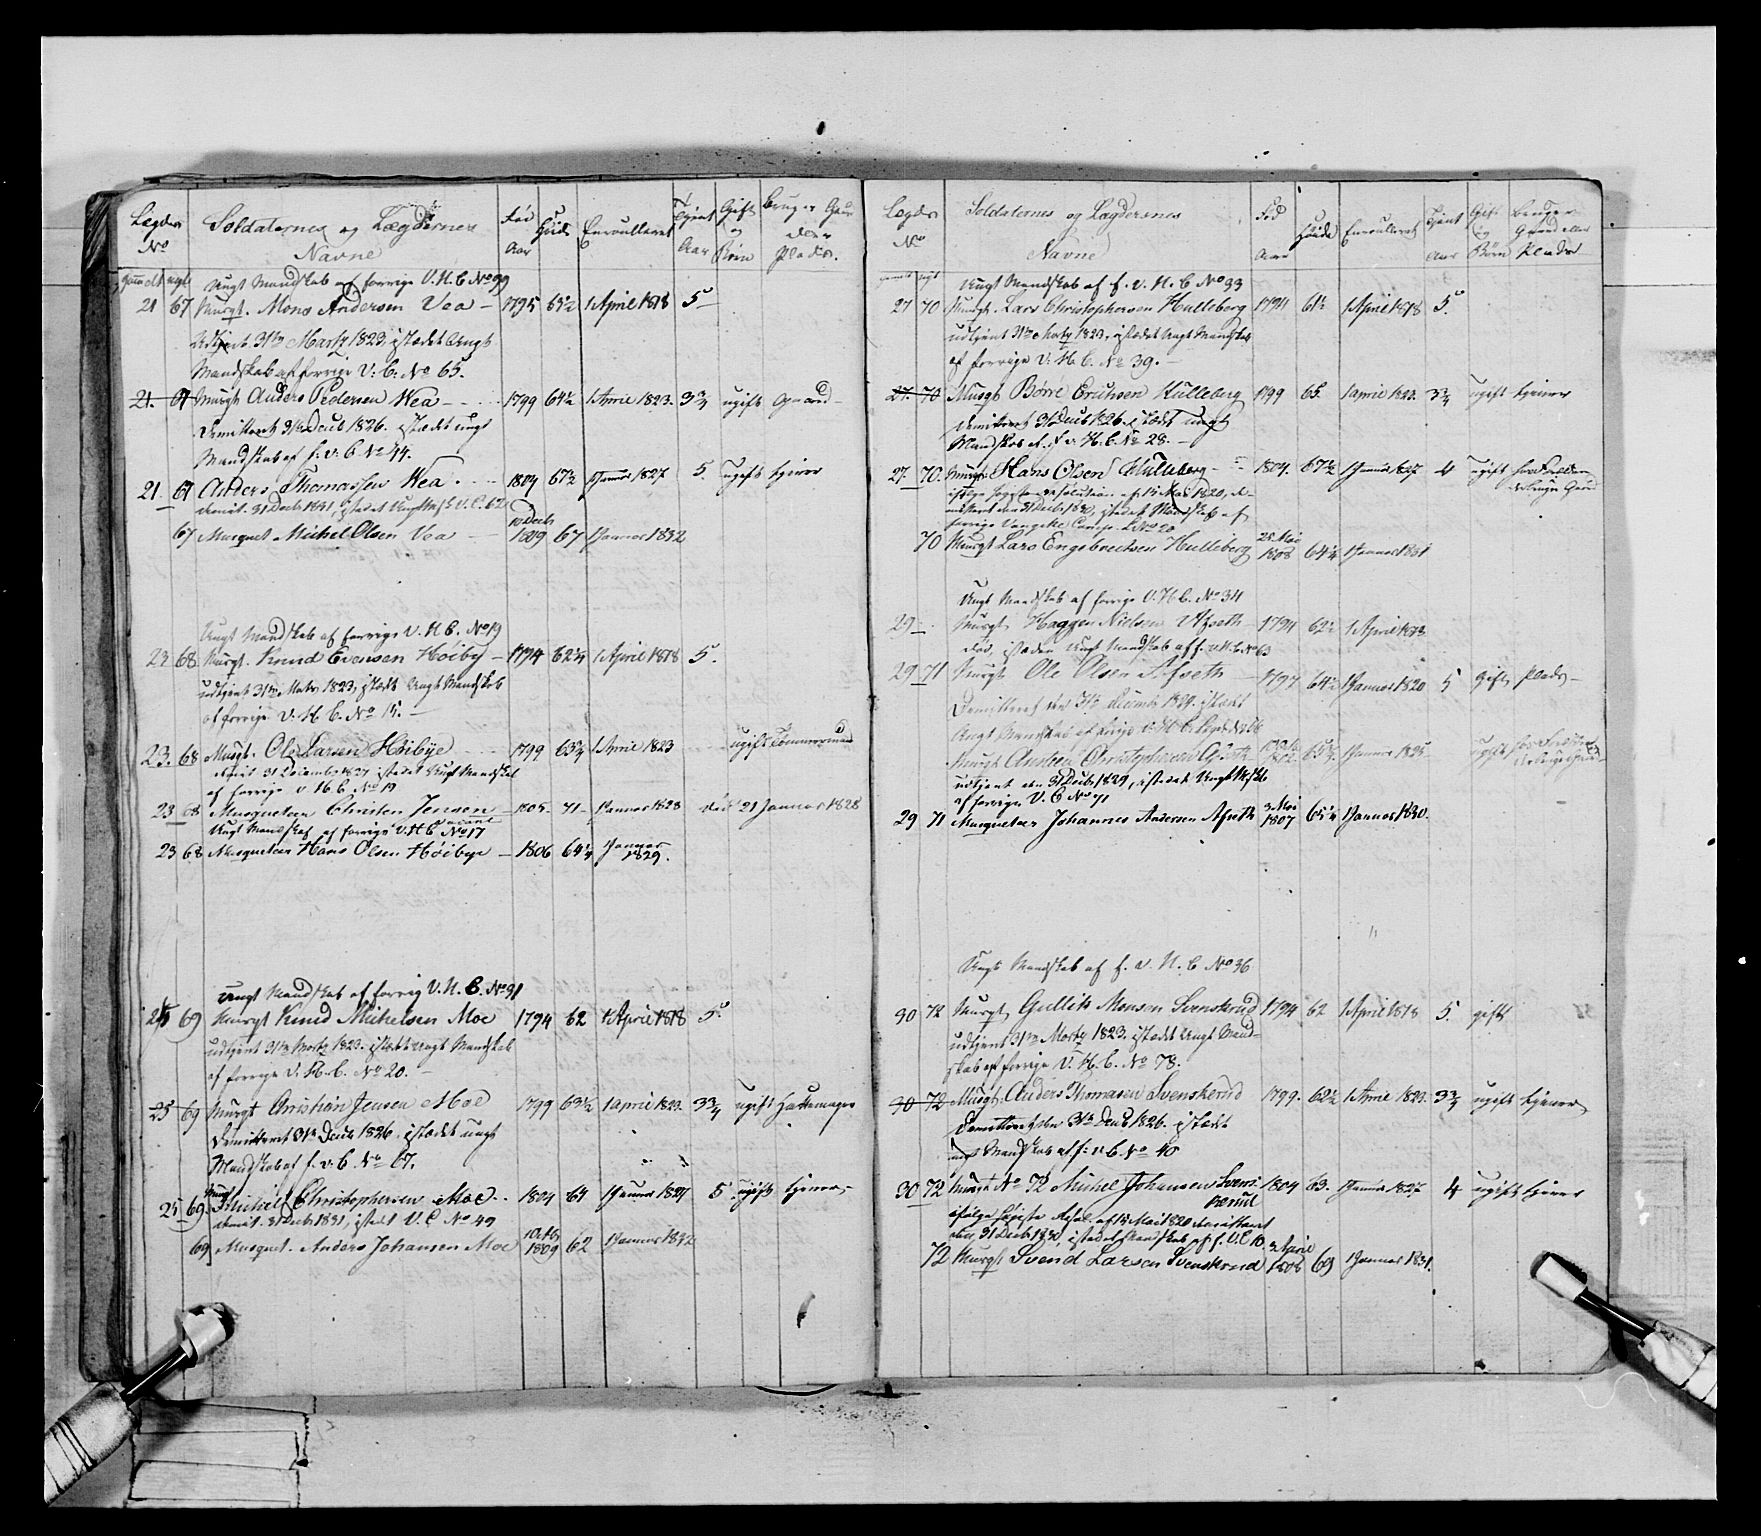 Lægdes No Soldaternes og Lægdernes Navne Fød Aar Høide Enroulleret Tjent Aar Gift og Børn Bruger Gaar eller Plads.
gammelt nyt Ungt Mandskab af forrige V. H. C No 99
21 67 Musqt. Mons Andersen Vea 1795 63½ 1 April 1818 5
udtjent 31te Marty 1823, istædet Ungt
Mandskab af forrige V: C: No 65.
21. 67 Musqt Anders Pedersen Wea 1799 64½ 1 April 1823. 3¾ ugift Gaard
Demitteret 31te Decbr 1826. istædet ungt
Mandskab af f. v. C No 44.
21. 67 Anders Thomassen Wea 1804 67½ 1 Januar 1827 5. ugift tjener
demit. 31 Decb 1831, istædet Ungt Msk V. C. 62
67 Musquet Michel Olsen Vea 10 Decb 1809 67 1 Januar 1832
Ungt Mandskab af forrige V. H C. No 19
23 68. Musqt. Knud Evensen Høiby 1794 62¼ 1 April 1818 5.
udtjent 31te Marty 1823, istædet Ungt Mandskab
af forrige V. H C. No 15.
23. 68 Musqt. Ole Larsen Høibye 1799 63¾ 1 April 1823 ugift Tømmermand
demit. 31 December 1827 istædet Ungt Mandskab
af forrige V. H. C. No 19
23 68 Musqueteer Christen Jensen 1805. 71 1 Januar 1828 død 21 Januar 1828
Ungt Mandskab af forrige V. H C No 17
23 68 Musqueteer Hans Olsen Høibye 1806 64¼ 1 Januar 1829.
Ungt Mandskab af forrig V. H. C. No 91
25 69 Musqt Knud Michelsen Moe 1794 62 1 April 1818 5.
udtjent 31te Marty 1823. istædet Ungt Mandskab
af forrige V. H. C. No 20.
25 69 Musqt Christian Jensen Moe 1799 63½ 1 april 1823. 3¾ ugift Hattemager
Demitteret 31te Decbr 1826. istædet ungt
Mandskab af f. v. C. No 67.
25 69. Musqt Michel Christophersen Moe 1804 64 1 Januar 1827 5 ugift tjener
demit. 31 Decb 1831, istædet V. C No 49
69 Musquet. Anders Johansen Moe 1809 62 1 Januar 1832
Lægdes No Soldaternes og Lægdernes Navne Fød Aar Høide Enroulleret Tjent Aar Gift og Børn Bruger Gaard eller Plads
gammelt nyt Ungt Mandskab af f. v. H. C No 33
27 70 Musqt. Lars Christophersen Hulleberg 1794 61½ 1 April 1818 5.
udtjent 31te Marty 1823, istædet Ungt Mandskab
af forrige V. H. C. No 39.
27. 70 Musqt Børre Erichsen Hulleberg 1799 65. 1 april 1823. 3¾ ugift tjener
Demitteret 31 Decbr 1826. istædet ungt
Mandskab af f v. H. C. No 28.
27. 70. Musqt. Hans Olsen Hulleberg 1804. 67½ 1 Januar 1827 4 ugift
ifølge høyeste resolution af 15 Mai 1820, de-
mitteret den 31 Decb 1830, istædet Mandskab af
forrige Vangske Comp. No 20
70 Musqt Lars Engebretsen Hulleberg 25 Mai 1808 64¼ 1 Januar 1831
Ungt Mandskab af forrige V. H C. No 34
29 Musqt Haagen Nielsen Afseth 1794 62½ 1 April 1818
død, istæden Ungt Mandskab af f. v. H. C. No 63
29 71 Musqt Ole Olsen Afseth 1797 64½ 1 Januar 1820 5 Gift Plads
Demitteret den 31te December 1824. istædet
Ungt Mandskab af forrige V. H C.
Musqt Anders Christophersen 1802 65¾ 1 Januar 1825 ugift
udtjent den 31 Decb 1829, istædet Ungt Mskb
af forrige V. C No 71
29 71 Musqueteer Johannes Andersen Afseth 3 Mai 1807 65¼ 1 Januar 1830.
Ungt Mandskab af f. v. H. C No 36
30 72 Musqt. Gullik Monsen Svenskerud 1794 62 1 April 1818 5. gift
udtjent 31te Marty 1823, istædet Ungt Mand-
skab af forrige V. H. C. No 78.
30 72 Musqt. Anders Thomasen Svenskerud 1799. 62½ 1 April 1823. 3¾ ugift tjener
Demitteret den 31te Decb 1826. istædet
ungt Mandskab af f: v. C. No 40
30 72 Musqt No 72 Michel Johansen Svenskerud 1804 63. 1 Januar 1827 4 ugift tjener
ifølge høieste Resol. af 15 Mai 1820 demitteret
den 31 Decb 1830, istædet Mandskab af f. V. C 10.
72 Musqt Svend Larsen Svenskerud 3 April 1808 69 1 Januar 1831.